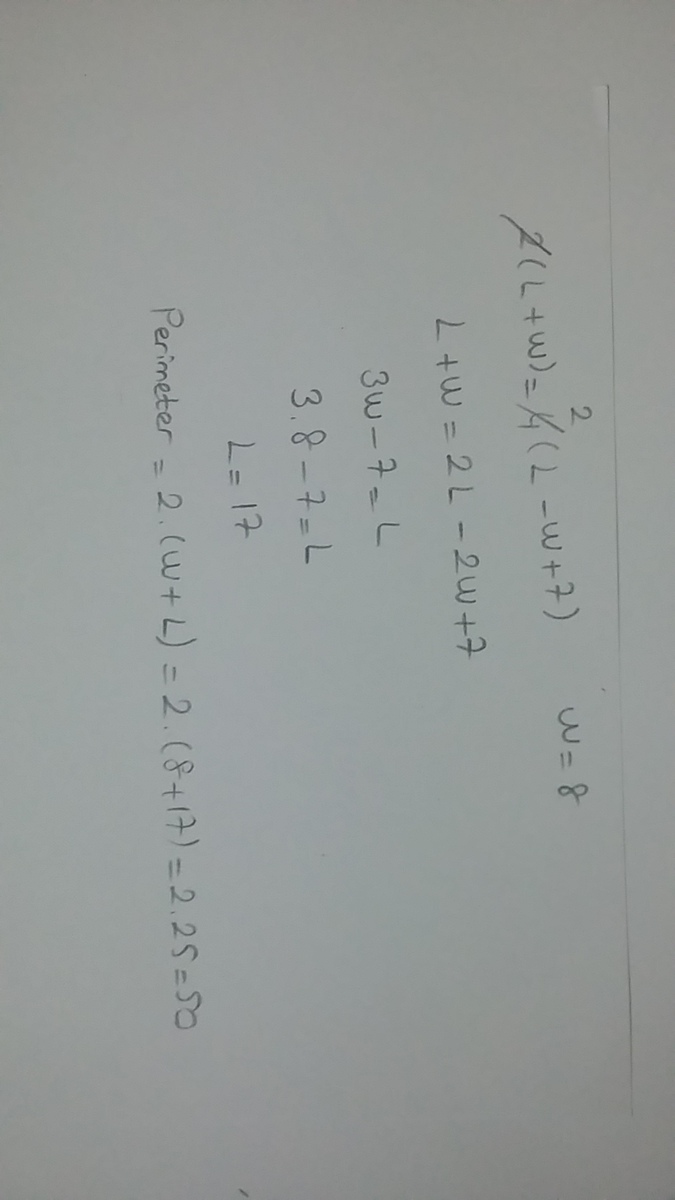 2(L+w)=4 2(L-w+7) w=8
L+w=2L-2w+7
3w-7=L
3.8-7=L
L=17
Perimeter = 2.(w+L)=2.(8+17)=2.25=50